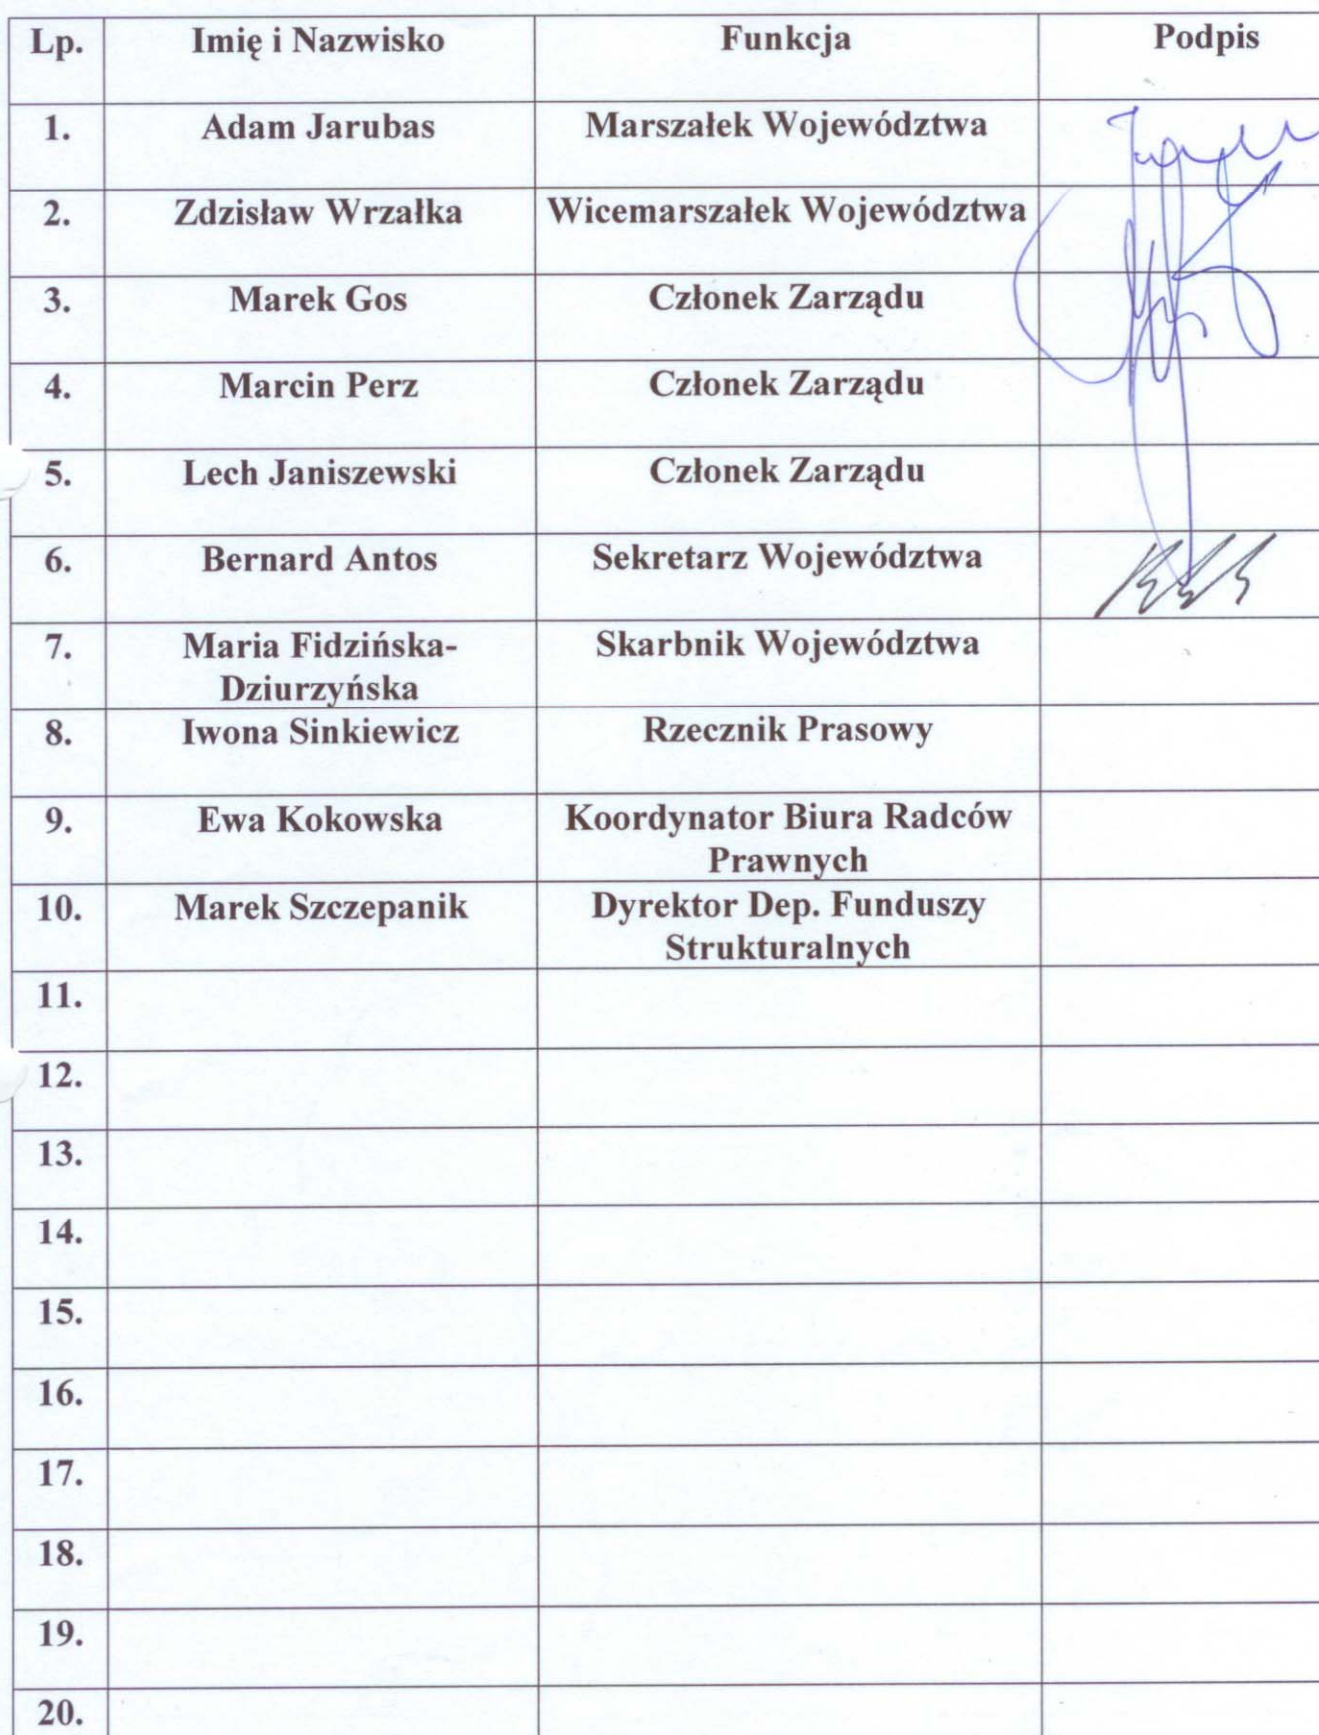 Lp. Imię i Nazwisko Funkcja Podpis
1. Adam Jarubas Marszałek Województwa
2. Zdzisław Wrzałka Wicemarszałek Województwa
3. Marek Gos Członek Zarządu
4. Marcin Perz Członek Zarządu
5. Lech Janiszewski Członek Zarządu
6. Bernard Antos Sekretarz Województwa
7. Maria Fidzińska- Skarbnik Województwa
Dziurzyńska
8. Iwona Sinkiewicz Rzecznik Prasowy
9. Ewa Kokowska Koordynator Biura Radców
Prawnych
10. Marek Szczepanik Dyrektor Dep. Funduszy
Strukturalnych
11.
12.
13.
14.
15.
16.
17.
18.
19.
20.